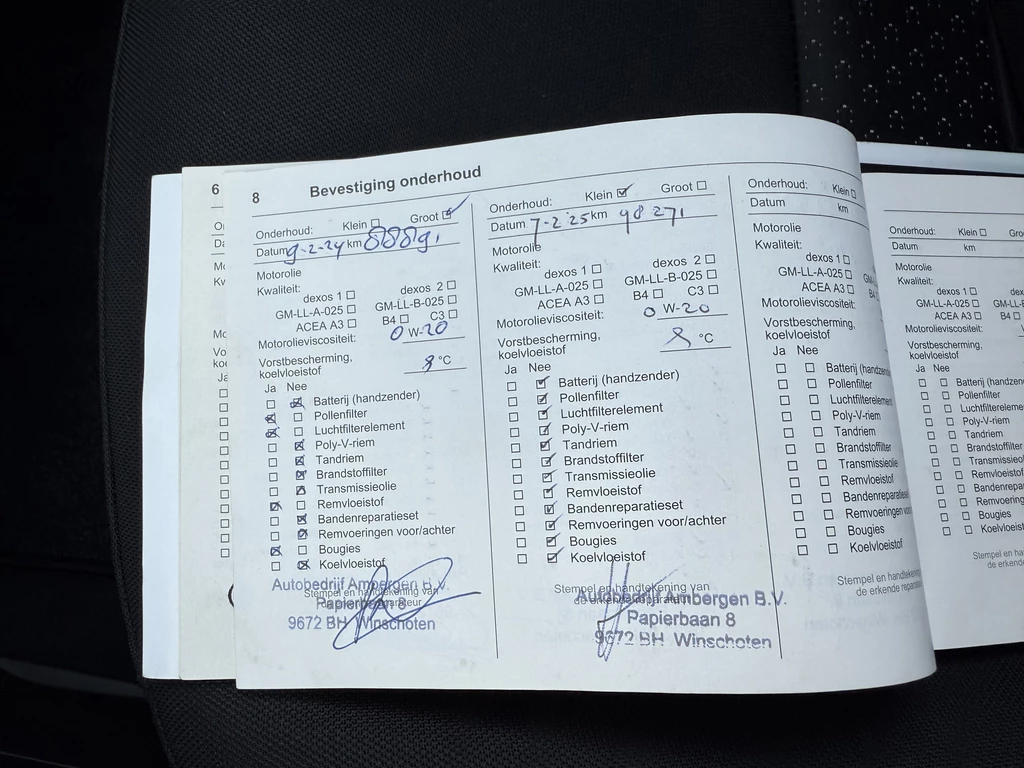 6
8 Bevestiging onderhoud
Onderhoud: Klein Groot
Datum 9-2-24 km 88891
Motorolie
Kwaliteit:
dexos 1 dexos 2
GM-LL-A-025 GM-LL-B-025
ACEA A3 B4 C3
Motorolieviscositeit: 0 W-20
Vorstbescherming,
koelvloeistof 8 °C
Ja Nee
Batterij (handzender)
Pollenfilter
Luchtfilterelement
Poly-V-riem
Tandriem
Brandstoffilter
Transmissieolie
Remvloeistof
Bandenreparatieset
Remvoeringen voor/achter
Bougies
Koelvloeistof
Stempel en handtekening van
Autobedrijf Ambergen B.V.
Papierbaan 8
9672 BH Winschoten
Onderhoud: Klein Groot
Datum 7-2-25 km 98 271
Motorolie
Kwaliteit:
dexos 1 dexos 2
GM-LL-A-025 GM-LL-B-025
ACEA A3 B4 C3
Motorolieviscositeit: 0 W-20
Vorstbescherming,
koelvloeistof °C
Ja Nee
Batterij (handzender)
Pollenfilter
Luchtfilterelement
Poly-V-riem
Tandriem
Brandstoffilter
Transmissieolie
Remvloeistof
Bandenreparatieset
Remvoeringen voor/achter
Bougies
Koelvloeistof
Stempel en handtekening van
de erkende reparateur
Autobedrijf Ambergen B.V.
Papierbaan 8
9672 BH Winschoten
Onderhoud: Klein
Datum km
Motorolie
Kwaliteit:
dexos 1
GM-LL-A-025
ACEA A3
Motorolieviscositeit:
Vorstbescherming,
koelvloeistof
Ja Nee
Batterij (handzen
Pollenfilter
Luchtfilterelemen
Poly-V-riem
Tandriem
Brandstoffilter
Transmissieolie
Remvloeistof
Bandenreparaties
Remvoeringen voor
Bougies
Koelvloeistof
Stempel en handtekening
de erkende reparateur
Onderhoud: Klein Gro
Datum km
Motorolie
Kwaliteit:
dexos 1 de
GM-LL-A-025 GM-LL-B
ACEA A3 B4
Motorolieviscositeit:
Vorstbescherming,
koelvloeistof
Ja Nee
Batterij (handzen
Pollenfilter
Luchtfilterelemen
Poly-V-riem
Tandriem
Brandstoffilter
Transmissieol
Remvloeistof
Bandenrepara
Remvoering
Bougies
Koelvloeist
Stempel en han
de erkende